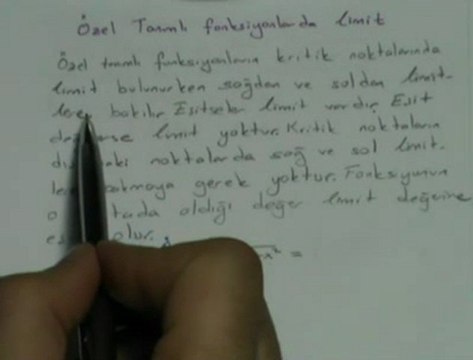 Özel Tanımlı fonksiyonlarda limit
Özel tanımlı fonksiyonların kritik noktalarında
limit bulunurken sağdan ve soldan limit-
lere bakılır Eşitseler limit vardır Eşit
limit yoktur. Kritik noktaların
noktalarda sağ ve sol limit-
gerek yoktur. Fonksiyonun
o oldığı değer limit değerine
olur.
x² =